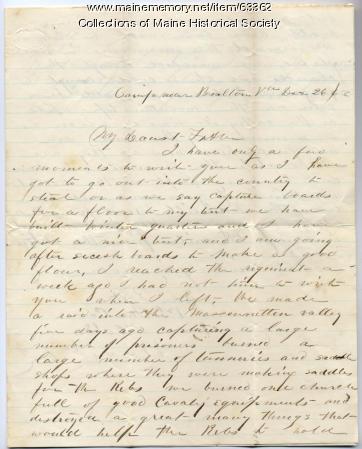 www.mainememory.net/item/63362
Collections of Maine Historical Society
Camp near Bealton Va Dec 26
My Dearest Father
I have only a few
moments to write you as I have
got to go out into the country to
steal or as we say capture boards
for a floor to my tent we have
built winter quarters and I have
got a nice tent, and I am going
after secesh boards to make a good
floor, I reached the regiment a
week ago I had not time to write
you when I left, We made
a raid into the Massanutten valley
five days ago capturing a large
number of prisoners burned a
large number of tanneries and saddle
shops where they were making saddles
for the Rebs we burned one church
full of good Cavalry equipments and
destroyed a great many things that
would help the Rebs to hold